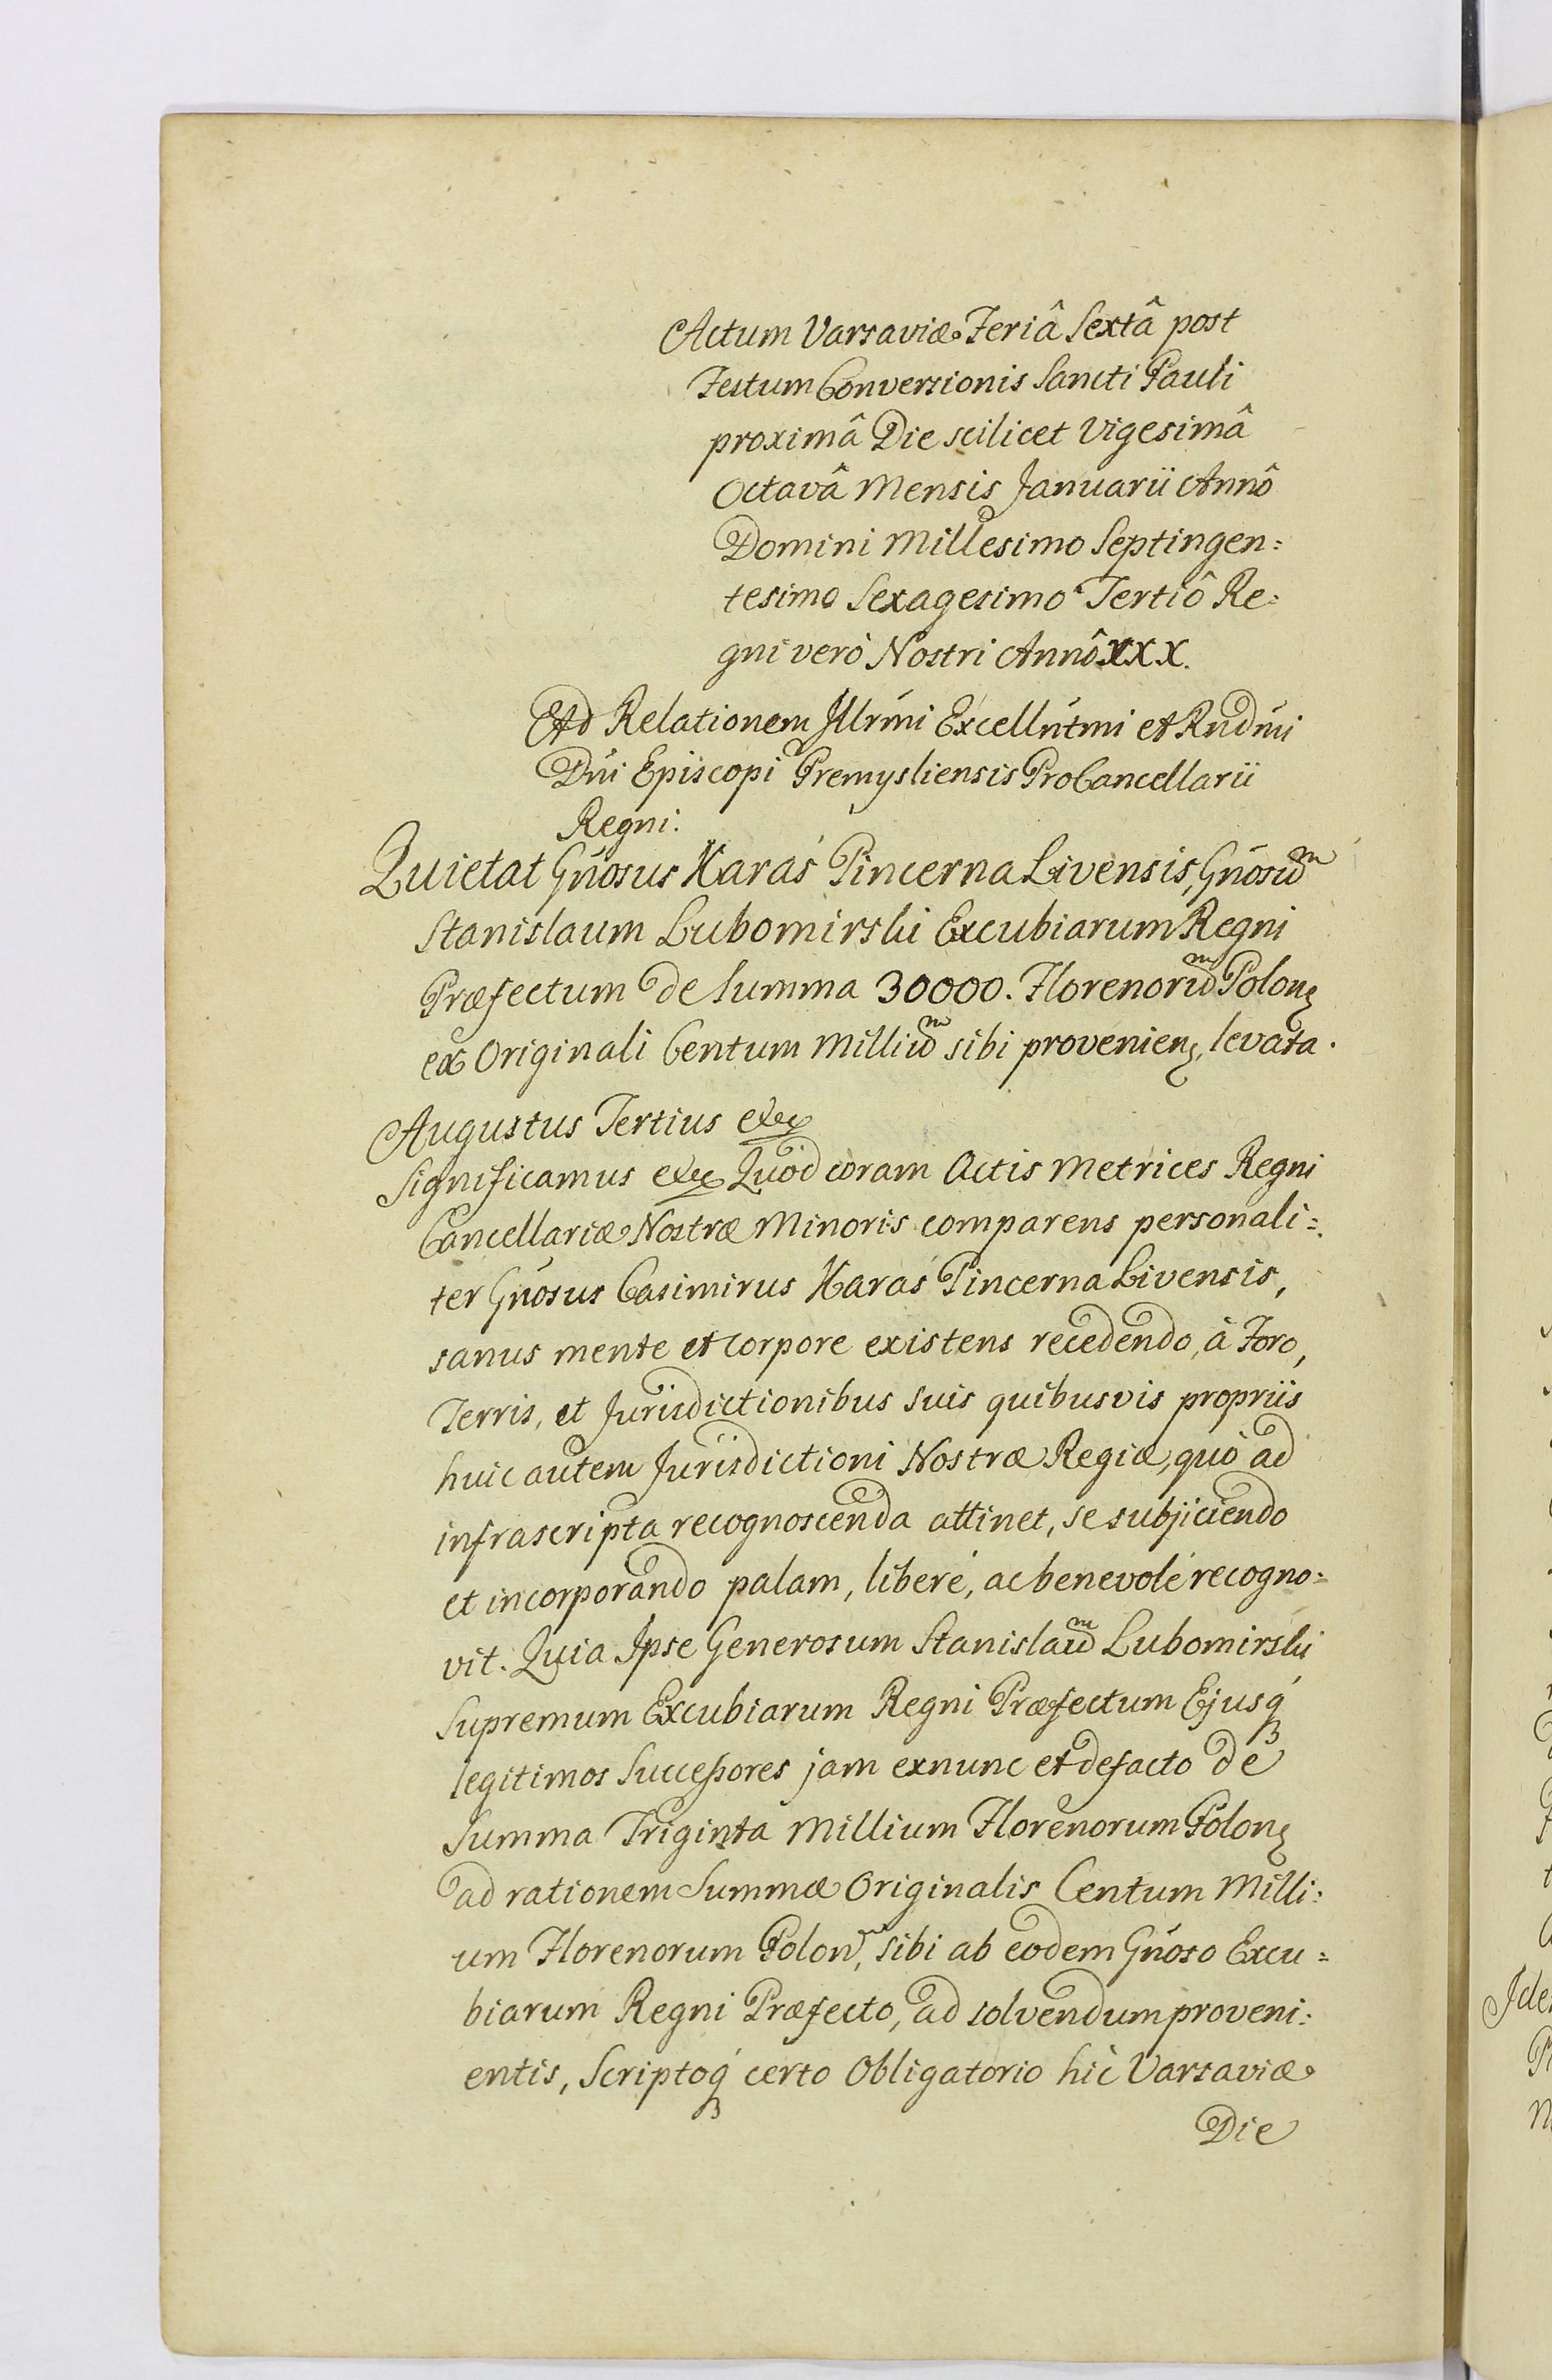 Actum Varsaviæ Feriâ Sextâ post
Festum Conversionis Sancti Pauli
proximâ Die scilicet Vigesimâ
Octavâ Mensis Januarii Annô
Domini Millesimo Septingen:
tesimo Sexagesimo Tertiô Re:
gni verò Nostri Annô XXX.
Ad Relationem Illrmi Excellntmi et Rndmi
Dni Episcopi Premysliensis ProCancellarii
Regni.
Quietat Gnosus Haras Pincerna Livensis, Gnosum
Stanislaum Lubomirski Excubiarum Regni
Præfectum de Summa 30000. Florenorum Polon
ex Originali Centum Millium sibi provenien, levata.
Augustus Tertius etc
Significamus etc Quod coram Actis Metrices Regni
Cancellariæ Nostræ Minoris comparens personali:
ter Gnosus Casimirus Haras Pincerna Livensis,
sanus mente et corpore existens recedendo, à Foro,
Terris, et Jurisdictionibus suis quibusvis propriis
huic autem Jurisdictioni Nostræ Regiæ, quò ad
infrascripta recognoscenda attinet, se subjiciendo
et incorporando palam, liberé, ac benevolé recogno:
vit. Quia Ipse Generosum Stanislaum Lubomirski
Supremum Excubiarum Regni Præfectum Ejusq
legitimos Successores jam exnunc et defacto de
Summa Triginta Millium Florenorum Polon
ad rationem Summæ Originalis Centum Milli:
um Florenorum Polon, sibi ab eodem Gnoso Excu:
biarum Regni Præfecto, ad solvendum proveni:
entis, Scriptoq certo Obligatorio hic Varsaviæ
Die